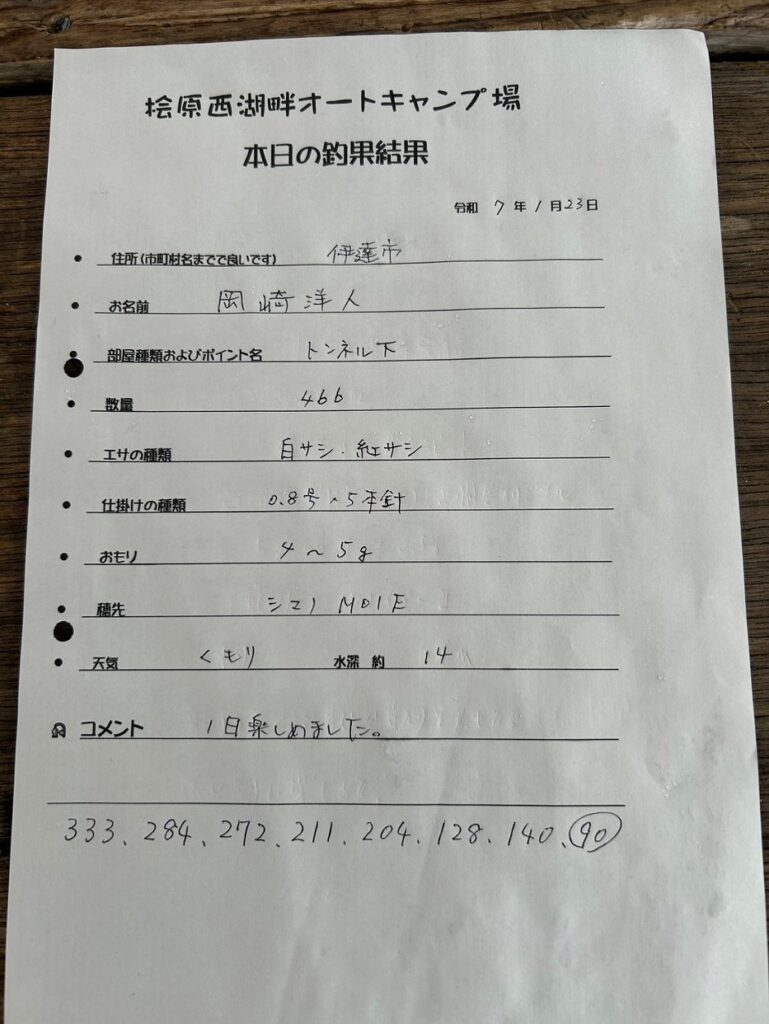 桧原西湖畔オートキャンプ場
本日の釣果結果
令和 7 年 1 月 23 日
住所(市町村名までで良いです) 伊達市
お名前 岡崎洋人
部屋種類およびポイント名 トンネル下
数量 466
エサの種類 白サシ・紅サシ
仕掛けの種類 0.8号、5本針
おもり 4～5g
穂先 シマノ M01E
天気 くもり 水深 約 14
コメント 1日楽しめました。
333、284、272、211、204、128、140、90